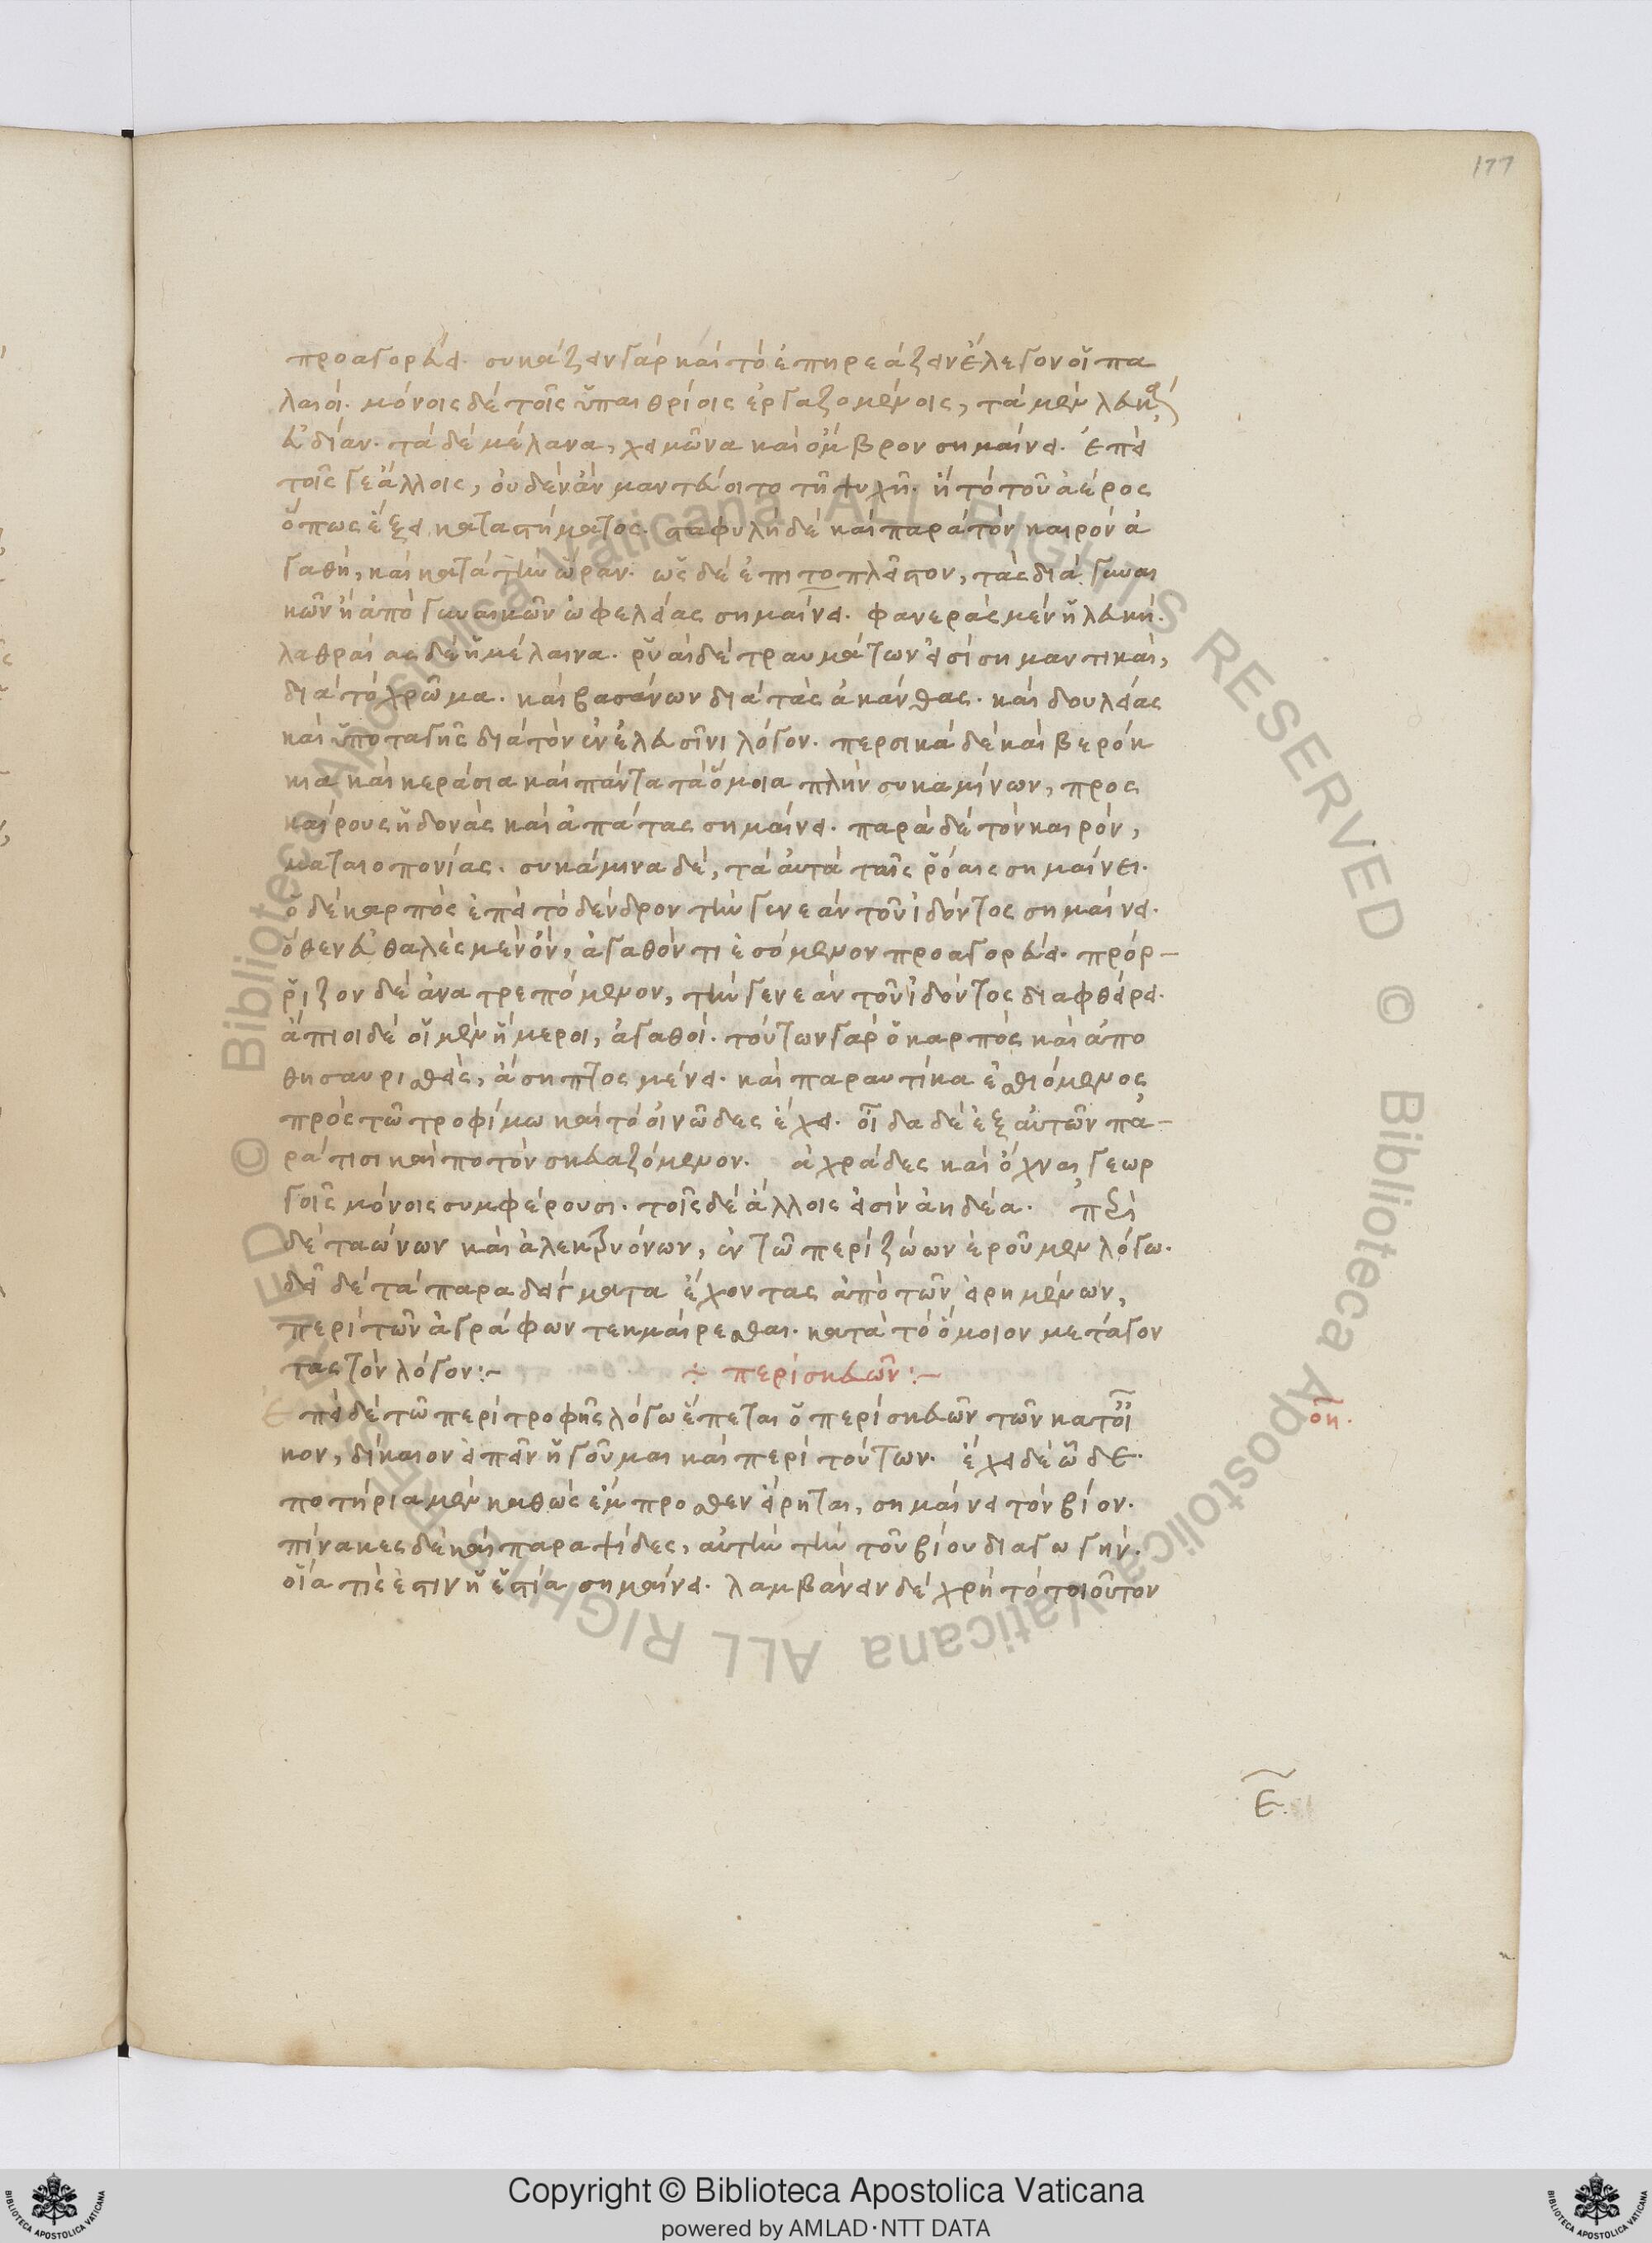 177
προαγορεύει. συκάζειν γὰρ καὶ τὸ ἐπηρεάζειν ἔλεγον οἱ πα
λαιοί. μόνοις δὲ τοῖς ὑπαιθρίοις ἐργαζομένοις, τὰ μὲν λευκὰ
εὐδίαν. τὰ δὲ μέλανα, χειμῶνα καὶ ὄμβρον σημαίνει. ἐπεὶ
τοῖς γε ἄλλοις, οὐδὲν ἂν μαντεύοιτο τῇ ψυχῇ. ἢ τὸ τοῦ ἀέρος
ὅπως ἕξει καταστήματος. σταφυλὴ δὲ καὶ παρὰ τὸν καιρὸν ἀ
γαθὴ, καὶ κατὰ τὴν ὥραν. ὡς δὲ ἐπιτοπλεῖστον, τὰς διὰ γυναι
κῶν ἢ ἀπὸ γυναικῶν ὠφελείας σημαίνει. φανερὰς μὲν ἡ λευκή.
λαθραίας δὲ ἡ μέλαινα. ῥυαὶ δὲ τραυμάτων εἰσὶ σημαντικαὶ,
διὰ τὸ χρῶμα. καὶ βασάνων διὰ τὰς ἀκάνθας. καὶ δουλείας
καὶ ὑποταγῆς διὰ τὸν ἐν ἐλευσῖνι λόγον. περσικὰ δὲ καὶ βερόκ
κια καὶ κεράσια καὶ πάντα τὰ ὅμοια πλὴν συκαμίνων, προς
καίρους ἡδονὰς καὶ ἀπάτας σημαίνει. παρὰ δὲ τὸν καιρόν,
ματαιοπονίας. συκάμινα δὲ, τὰ αὐτὰ ταῖς ῥόαις σημαίνει.
ὁ δὲ καρπὸς ἐπεὶ τὸ δένδρον τὴν γενεὰν τοῦ ἰδόντος σημαίνει.
ὅθεν εὐθαλὲς μὲν ὄν, ἀγαθόν τι ἐσόμενον προαγορεύει. πρόρ-
ριζον δὲ ἀνατρεπόμενον, τὴν γενεὰν τοῦ ἰδόντος διαφθείρει.
ἄπιοι δὲ οἱ μὲν ἥμεροι, ἀγαθοί. τούτων γὰρ ὁ καρπὸς καὶ ἀπο
θησαυρισθεὶς, ἄσηπτος μένει. καὶ παραυτίκα ἐσθιόμενος
πρὸς τῷ τροφίμω καὶ τὸ οἰνῶδες ἔχει. οἶδα δὲ ἐξ αὐτῶν πα-
ρά τισι καὶ ποτὸν σκευαζόμενον. ἀχράδες καὶ ὄχναι γεωρ
γοῖς μόνοις συμφέρουσι. τοῖς δὲ ἄλλοις εἰσὶν ἀηδεῖα. περὶ
δὲ ταώνων καὶ ἀλεκτρυόνων, ἐν τῷ περὶ ζώων ἐροῦμεν λόγω.
δεῖ δὲ τὰ παραδείγματα ἔχοντας ἀπὸ τῶν εἰρημένων,
περὶ τῶν ἀγράφων τεκμαίρεσθαι. κατὰ τὸ ὅμοιον μετάγον
τας τὸν λόγον:-
÷ περὶ σκευῶν:-
ἐπεὶ δὲ τῷ περὶ τροφῆς λόγω ἕπεται ὁ περὶ σκευῶν τῶν κατοῖ
κον, δίκαιον εἰπεῖν ἡγοῦμαι καὶ περὶ τούτων. ἔχει δὲ ὧδε.
ποτήρια μὲν καθὼς ἔμπροσθεν εἴρηται, σημαίνει τὸν βίον.
πίνακες δὲ καὶ παραψίδες, αὐτὴν τὴν τοῦ βίου διαγωγήν.
οἵα τίς ἐστιν ἡ ἑστία σημαίνει. λαμβάνειν δὲ χρὴ τὸ τοιοῦτον
οη.
ε.
Copyright © Biblioteca Apostolica Vaticana
powered by AMLAD·NTT DATA
© Biblioteca Apostolica Vaticana ALL RIGHTS RESERVED © Biblioteca Apostolica Vaticana ALL RIGHTS RESERVED
BIBLIOTECA APOSTOLICA VATICANA
BIBLIOTECA APOSTOLICA VATICANA